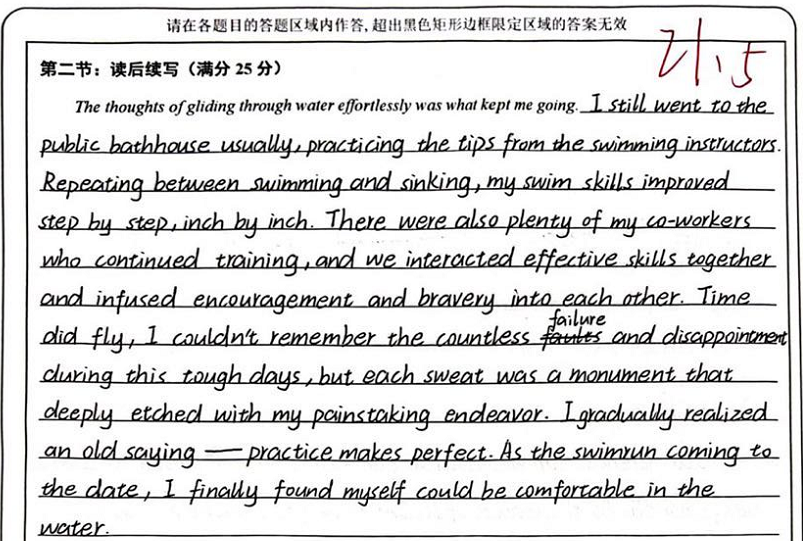 请在各题目的答题区域内作答,超出黑色矩形边框限定区域的答案无效
21.5
第二节：读后续写（满分 25 分）
The thoughts of gliding through water effortlessly was what kept me going. I still went to the
public bathhouse usually, practicing the tips from the swimming instructors.
Repeating between swimming and sinking, my swim skills improved
step by step, inch by inch. There were also plenty of my co-workers
who continued training, and we interacted effective skills together
and infused encouragement and bravery into each other. Time
failure
did fly, I couldn't remember the countless faults and disappointment
during this tough days, but each sweat was a monument that
deeply etched with my painstaking endeavor. I gradually realized
an old saying — practice makes perfect. As the swimrun coming to
the date, I finally found myself could be comfortable in the
water.